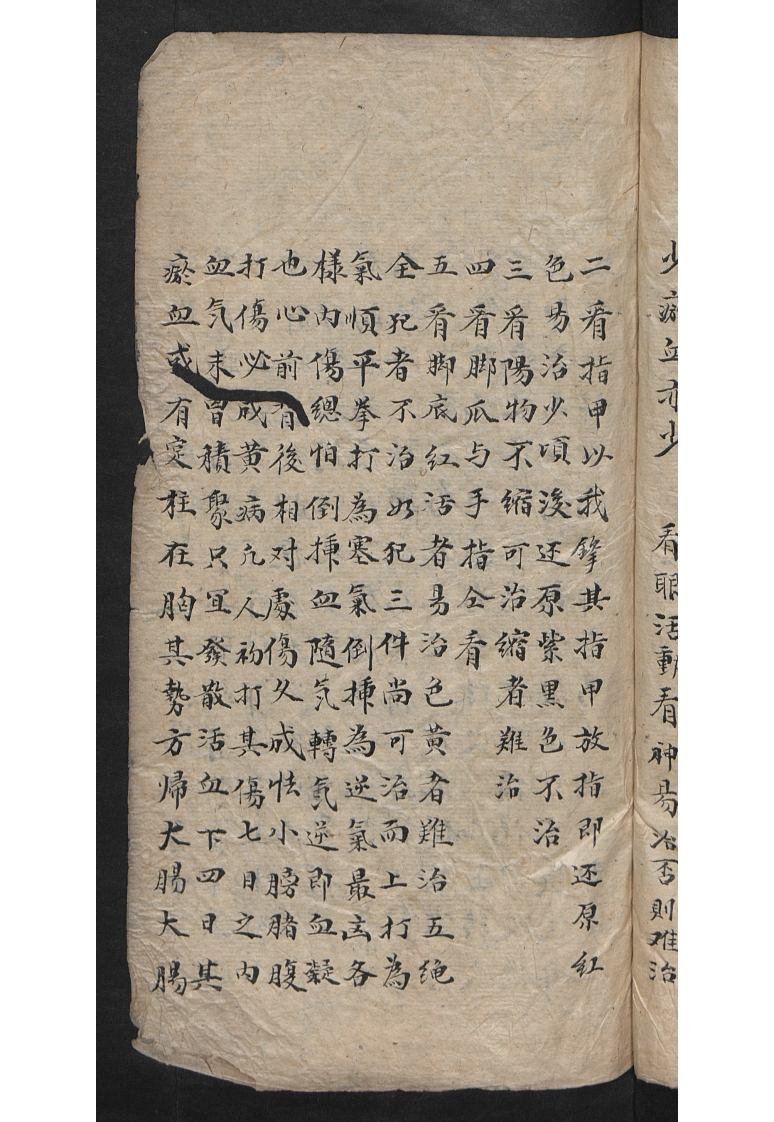 少瘀血亦少　看眼活動看神易治否則难治
二看指甲以我鋒其指甲放指即还原紅
色易治少頃後还原紫黑色不治
三看陽物不縮可治縮者難治
四看脚爪与手指仝看
五看脚底紅活者易治色黄者難治五绝
全犯者不治如犯三件尚可治而上打為
氣順平拳打為塞氣倒揷為逆氣最凶各
樣内傷總怕倒揷血隨気轉気逆即血凝
也心前有後相对處傷久成怯小膀腊腹
打傷必成黄病凢人初打其傷七日之内
血気未曽積聚只宜發散活血下四日其
瘀血或有定柱在胸其勢方帰大腸大腸